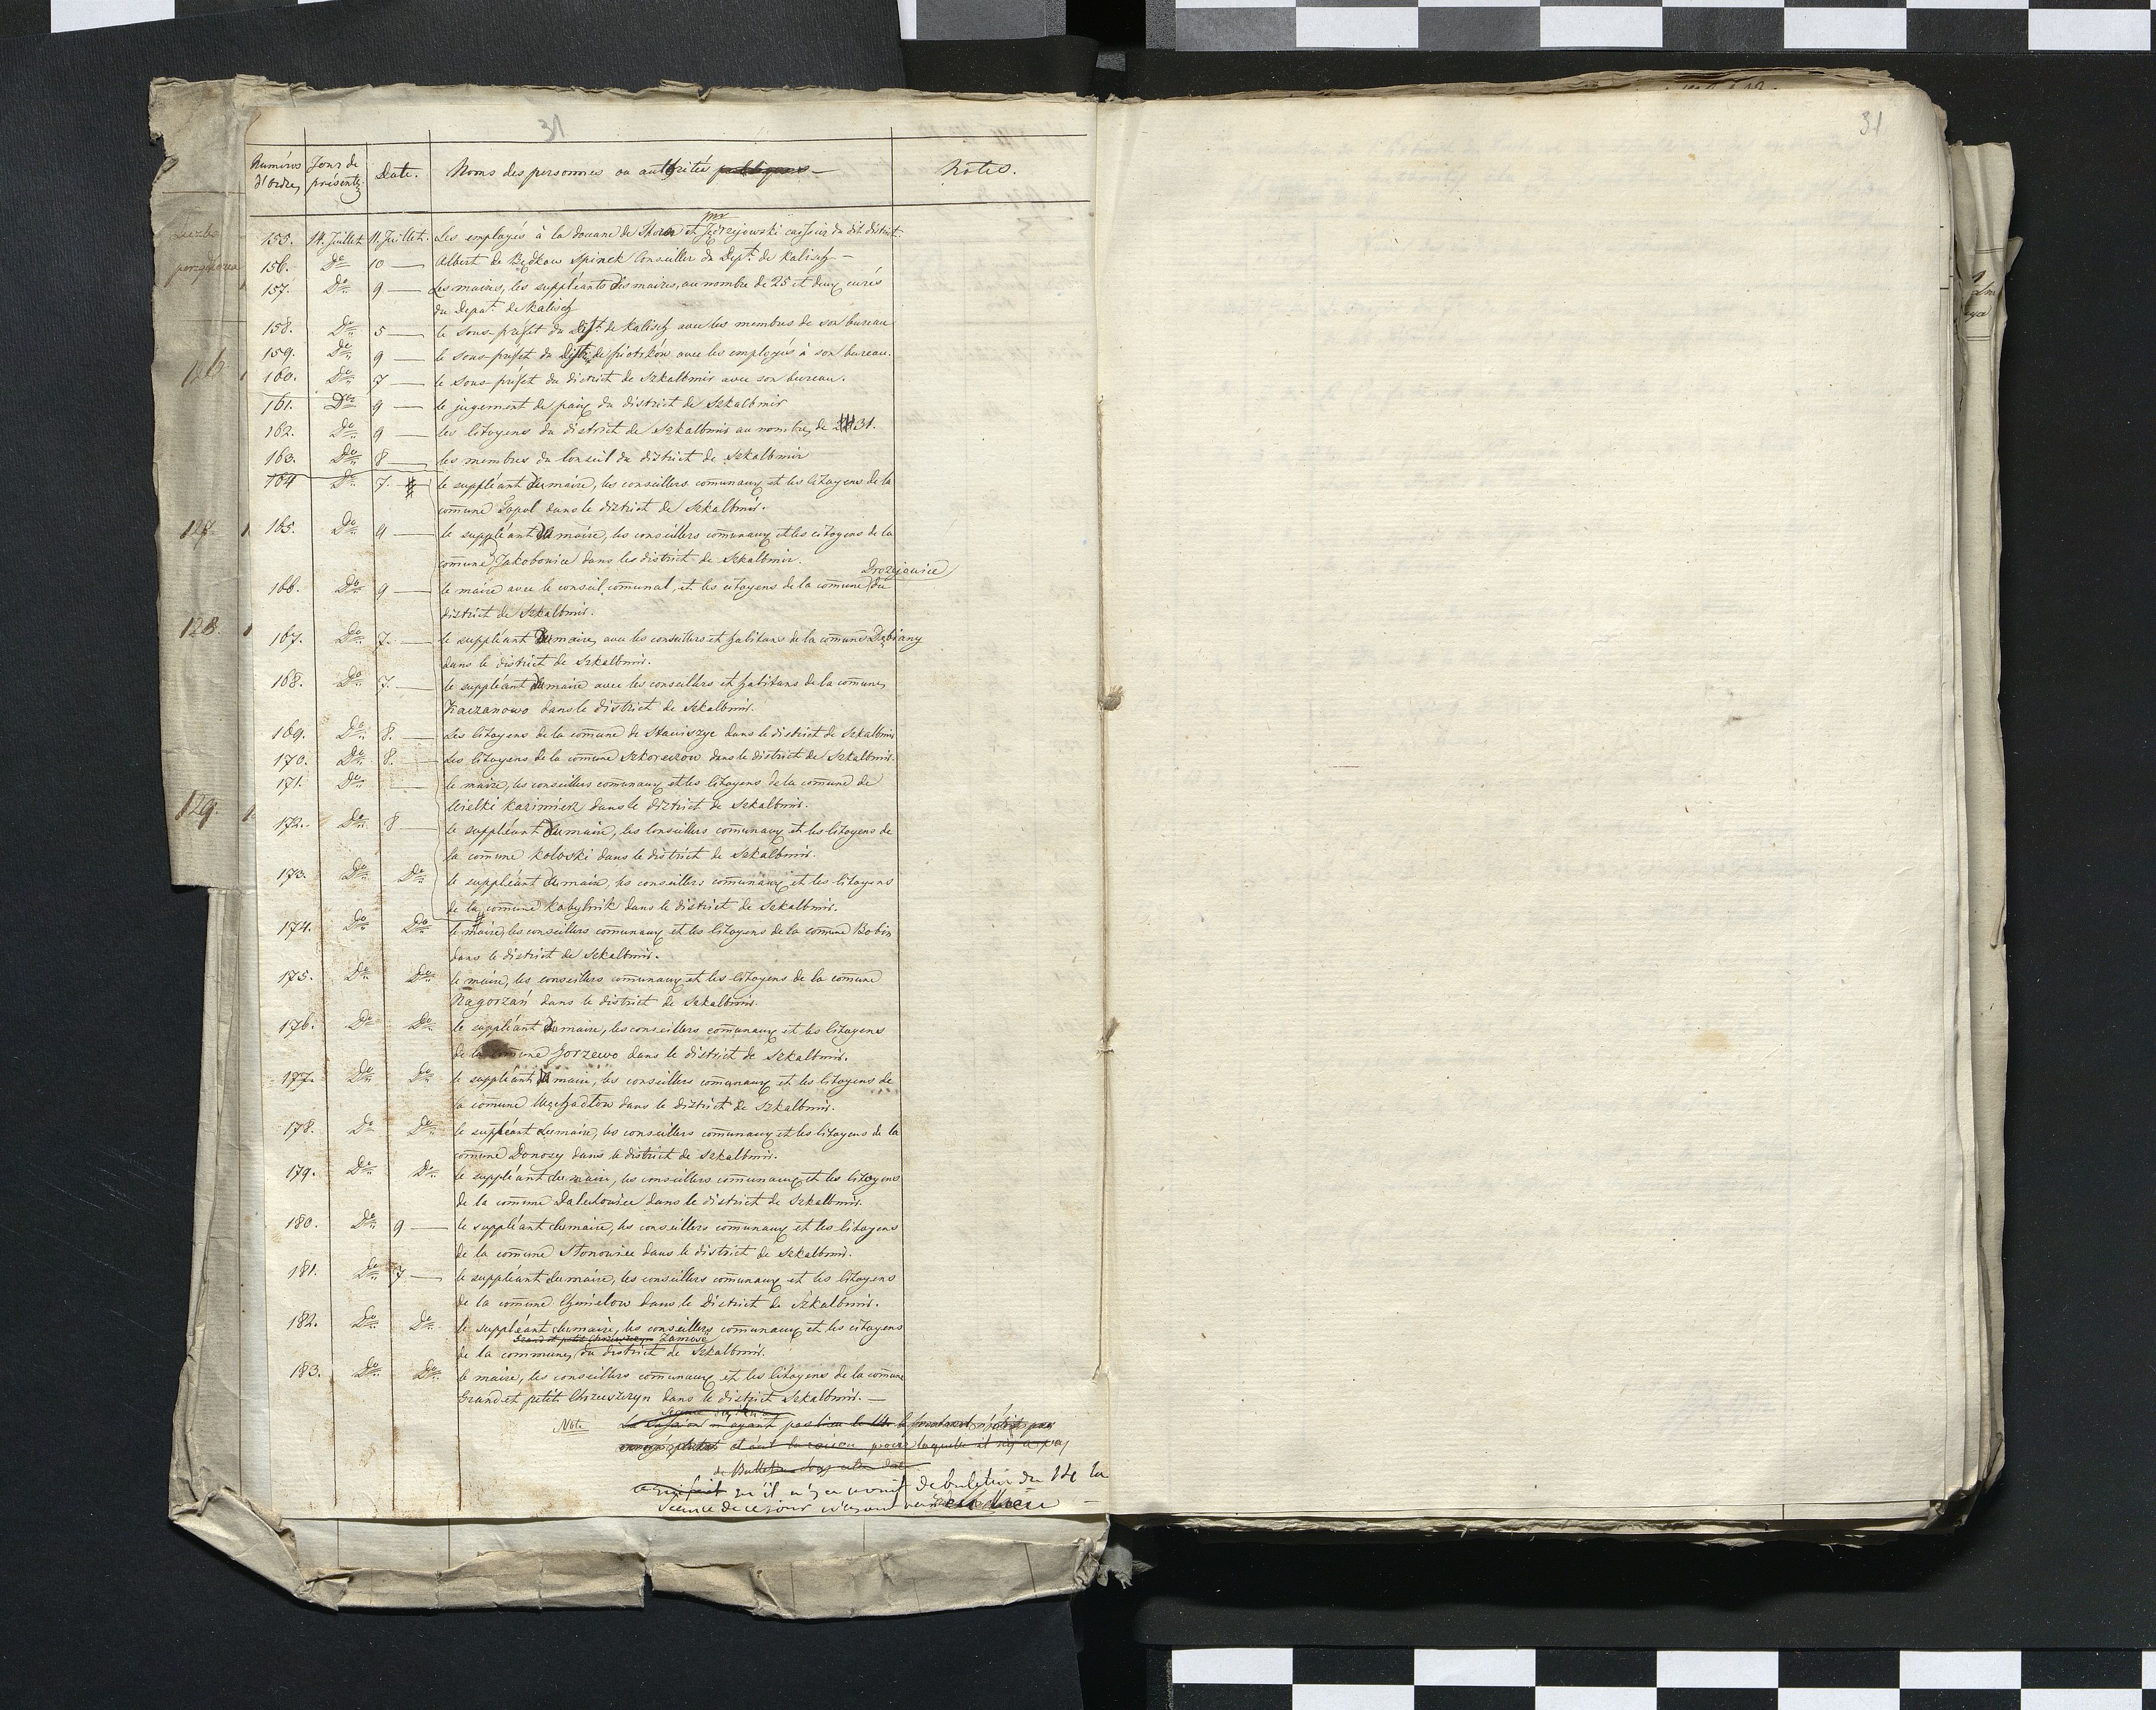 31
31
Numéros d'Ordre, Jour de présente: Date. Noms des personnes ou autorités publiques — Notes.
155. 14. Juillet 11. Juillet. Les employés à la douane de et Jędrzejowski caissier du dit district.
156. Do 10 — Albert de Będkow Spinek Conseiller du Dept. de Kalisch —
157. Do 9 — Les maires, les suppléants des maires, au nombre de 25 et deux curés
du Depat. de Kalisch
158. Do 5 — le sous-préfet du Dist. de Kalisch avec les membres de son bureau
159. Do 9 — le sous-préfet du Distr. de Piotrków avec les employés à son bureau.
160. Do 7 — le sous-préfet du district de Szkalbmir avec son bureau.
161. Do 9 — le jugement de paix du district de Szkalbmir
162. Do 9 — les Citoyens du district de Szkalbmir au nombre de 31.
163. Do 8 — les membres du Conseil du district de Szkalbmir
164 Do 7. — le suppléant du maire, les conseillers comunaux et les Citoyens de la
comune Topol dans le district de Szkalbmir.
165. Do 9 — le suppléant du maire, les conseillers comunaux et les citoyens de la
comune Jakobowice dans les district de Szkalbmir.
Drozejowice
166. Do 9 — le maire avec le conseil comunal, et les citoyens de la comune du
district de Szkalbmir.
167. Do 7. — le suppléant du maire, avec les conseillers et habitans de la comune Dębiany
dans le district de Szkalbmir.
168. Do 7. — le suppléant du maire avec les conseillers et habitans de la comune,
Kaczanowo dans le district de Szkalbmir.
169. Do 8. — Les Citoyens de la comune de Stawiszyce dans le district de Szkalbmir
170. Do 8. — Les Citoyens de la comune Szkorczow dans le district de Szkalbmir.
171. Do — le maire, les conseillers comunaux et les Citoyens de la comune de
Wielki Kazimierz dans le district de Szkalbmir.
172. Do 8 — le suppléant du maire, les Conseillers comunaux et les Citoyens de
la comune Koloski dans le district de Szkalbmir.
173. Do Do le suppléant du maire, les conseillers comunaux et les Citoyens
de la comune Kobylnik dans le district de Szkalbmir.
174. Do Do le maire, les conseillers comunaux et les Citoyens de la comune Bobin
dans le district de Szkalbmir.
175. Do Do le maire, les conseillers comunaux et les Citoyens de la comune
Nagorzań dans le district de Szkalbmir.
176. Do Do le suppléant du maire, les conseillers comunaux et les Citoyens
de la comune Gorzewo dans le district de Szkalbmir.
177. Do Do le suppléant du maire, les conseillers comunaux et les Citoyens de
la comune dans le district de Szkalbmir.
178. Do Do le suppléant du maire, les conseillers comunaux et les Citoyens de la
comune Donosy dans le district de Szkalbmir.
179. Do Do le suppléant du maire, les conseillers comunaux et les Citoyens
de la comune dans le district de Szkalbmir.
180. Do 9 — le suppléant du maire, les conseillers comunaux et les Citoyens
de la comune Stonowice dans le district de Szkalbmir.
181. Do 7 — le suppléant du maire, les conseillers comunaux et les Citoyens
de la comune Chmielow dans le district de Szkalbmir.
182. Do Do le suppléant du maire, les conseillers comunaux et les citoyens
Grand et petit Chruszczyn Zamość
de la commune, du district de Szkalbmir.
183. Do Do le maire, les conseillers comunaux et les Citoyens de la comune
Grand et petit Chruszczyn dans le district Szkalbmir. —
Not. La Session n'ayant pas lieu le 14
et c'est la raison pour laquelle il n'y a pas
de Bulletin
qu'il n'y a de buletin du 14 la
Seance de ce jour n'ayant
Liczba
porządkowa
126
127
128
129.